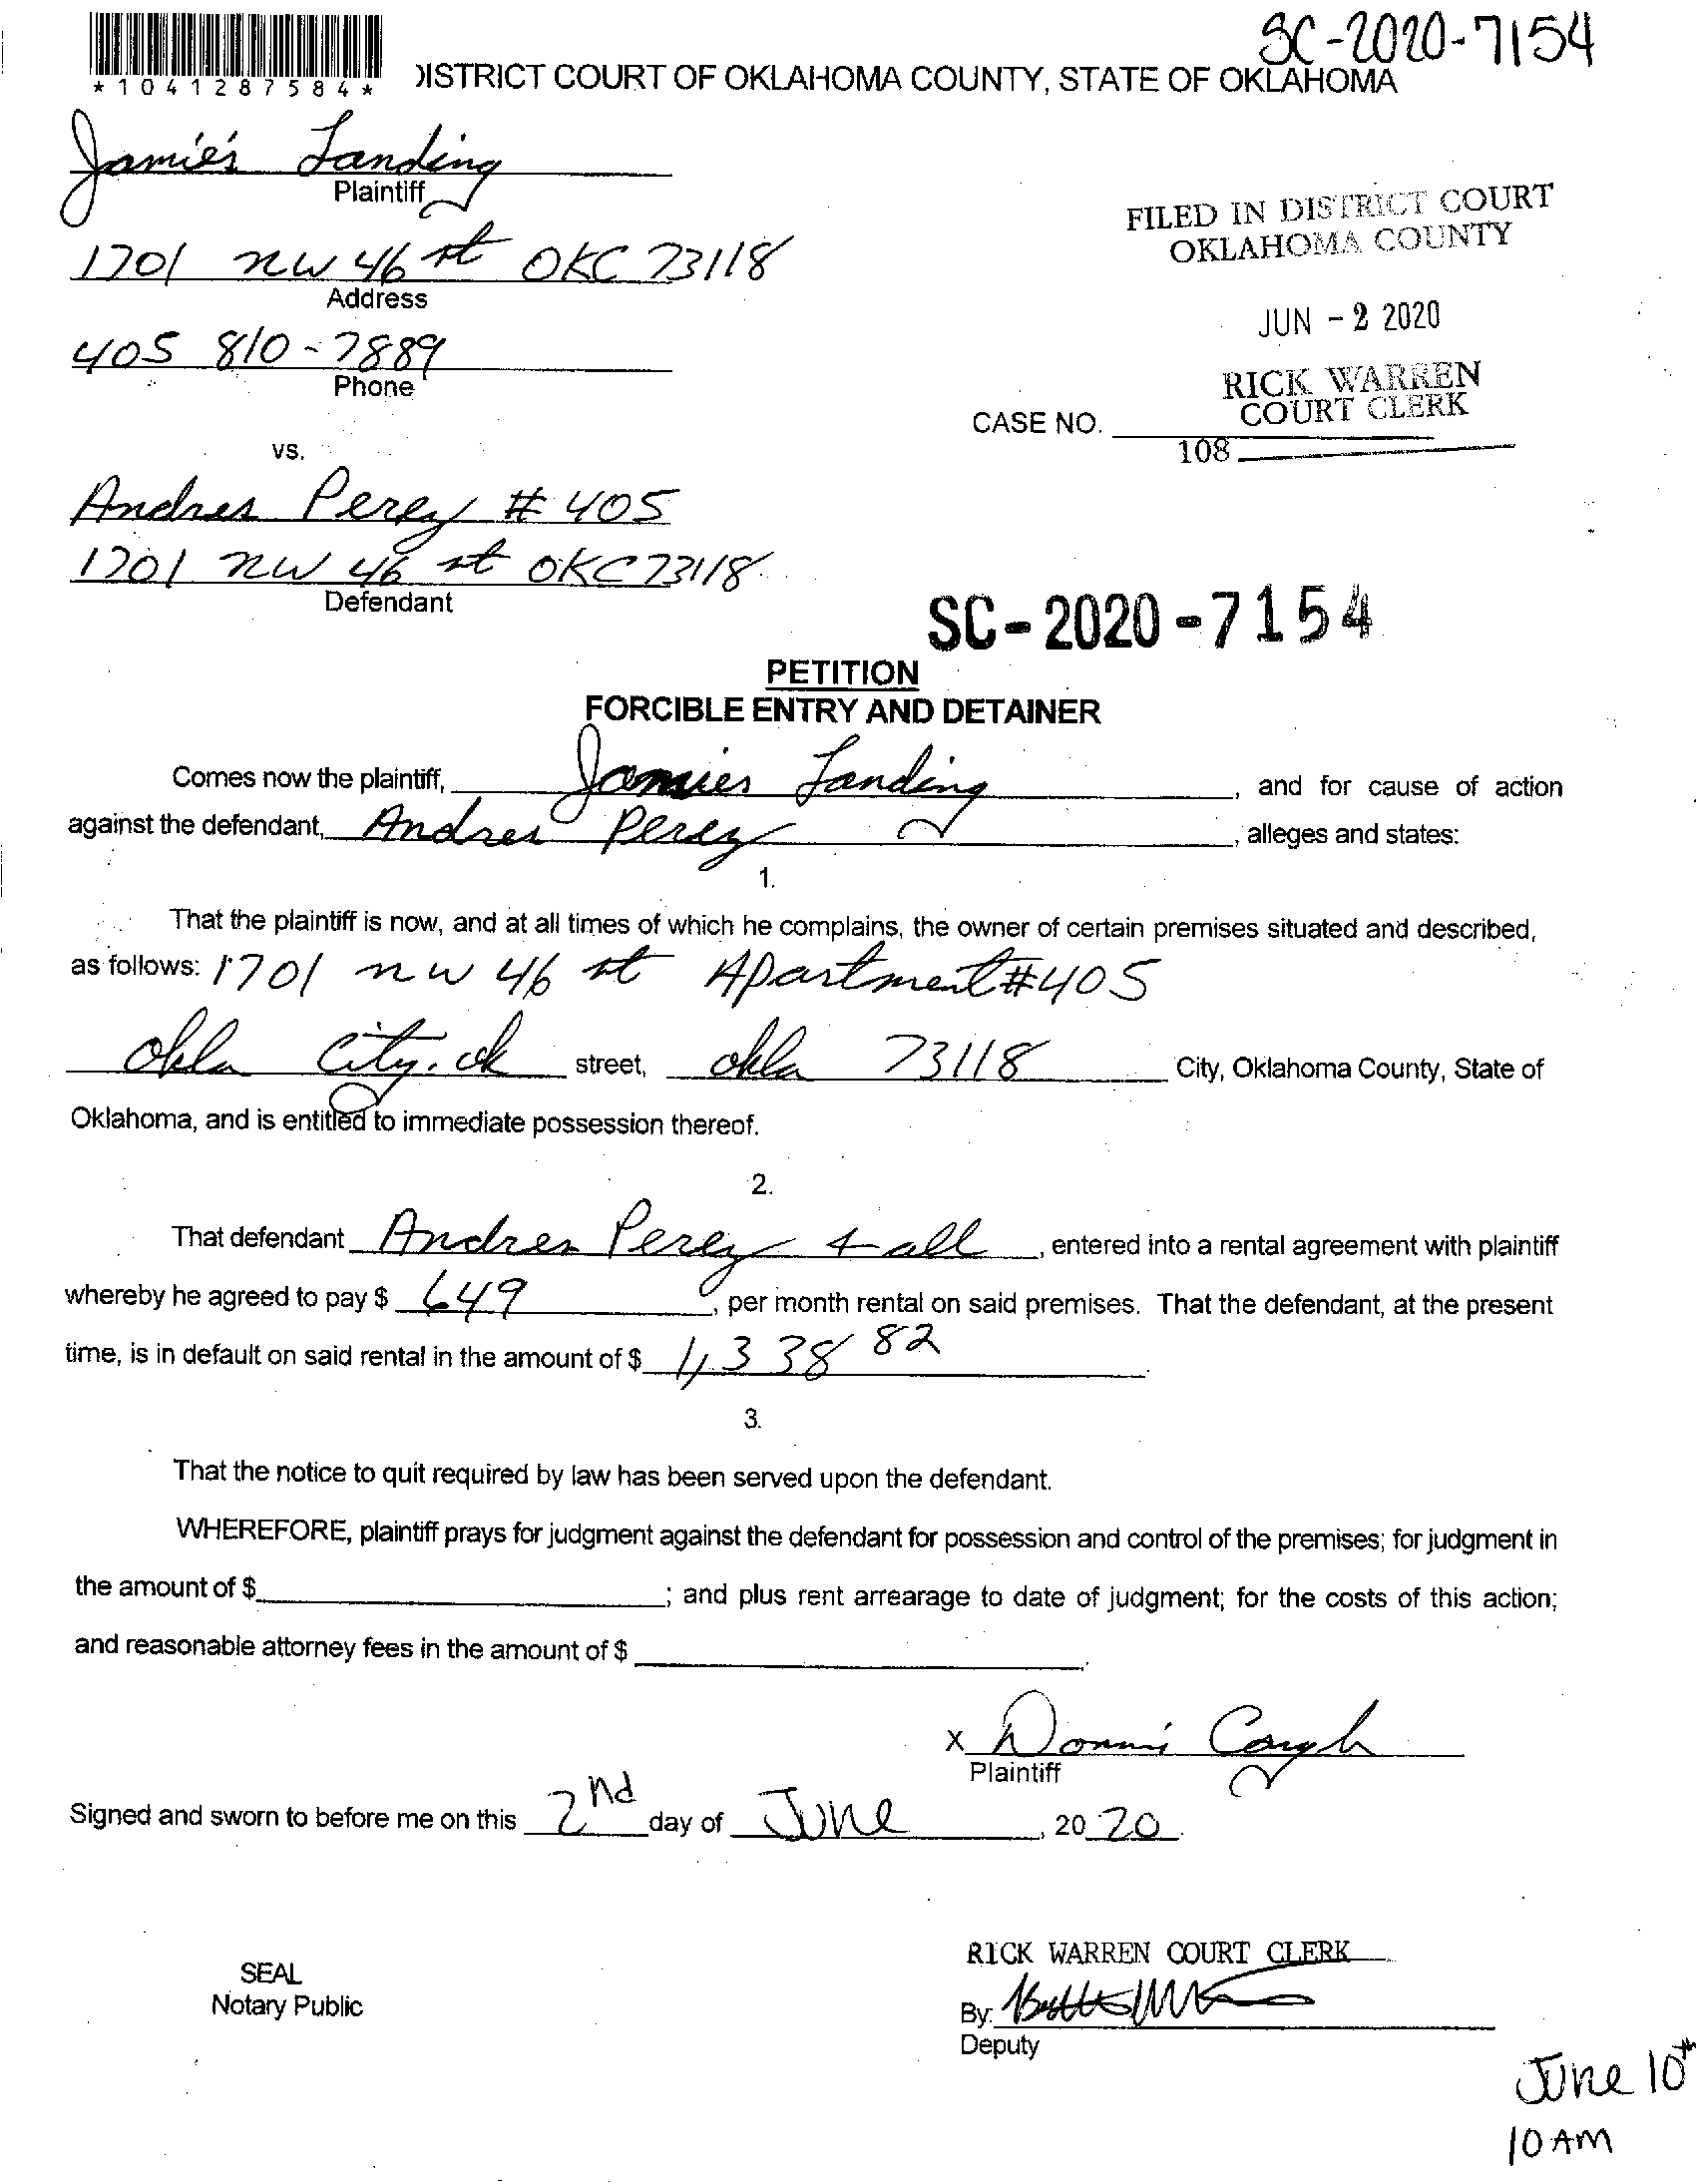 SC-2020-7154
*1041287584*
DISTRICT COURT OF OKLAHOMA COUNTY, STATE OF OKLAHOMA
Jamie's Landing
Plaintiff
1701 NW 46 st OKC 73118
Address
405 810-7889
Phone
FILED IN DISTRICT COURT
OKLAHOMA COUNTY
JUN - 2 2020
RICK WARREN
COURT CLERK
CASE NO.
108
vs.
Andres Perez # 405
1701 NW 46 st OKC 73118
Defendant
SC-2020-7154
PETITION
FORCIBLE ENTRY AND DETAINER
Comes now the plaintiff, Jamies Landing, and for cause of action
against the defendant, Andres Perez, alleges and states:
1.
That the plaintiff is now, and at all times of which he complains, the owner of certain premises situated and described,
as follows: 1701 NW 46 st Apartment #405
Okla City. Ok street, Okla 73118 City, Oklahoma County, State of
Oklahoma, and is entitled to immediate possession thereof.
2.
That defendant Andres Perez + all, entered into a rental agreement with plaintiff
whereby he agreed to pay $ 649, per month rental on said premises. That the defendant, at the present
time, is in default on said rental in the amount of $ 1,338 82.
3.
That the notice to quit required by law has been served upon the defendant.
WHEREFORE, plaintiff prays for judgment against the defendant for possession and control of the premises; for judgment in
the amount of $ ; and plus rent arrearage to date of judgment; for the costs of this action;
and reasonable attorney fees in the amount of $ .
X
Plaintiff
Signed and sworn to before me on this 2nd day of June, 2020.
SEAL
Notary Public
RICK WARREN COURT CLERK
By:
Deputy
June 10th
10 AM